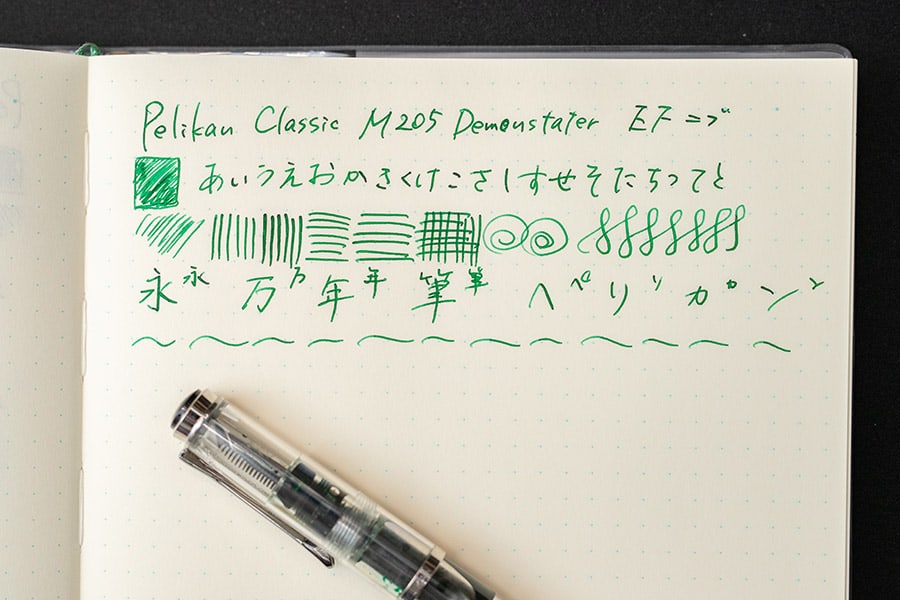 Pelikan Classic M205 Demonstater EF ニブ
あいうえおかきくけこさしすせそたちつてと
永永 万万年年 筆筆 ペペリリカカンン